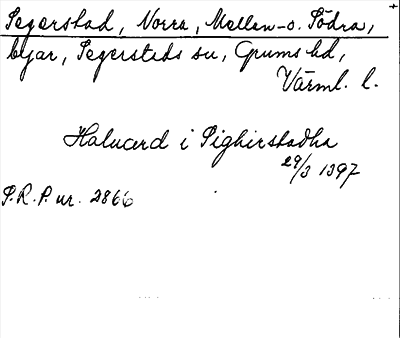 Segerstad, Norra, Mellan- o. Södra,
byar, Segerstads sn, Grums hd,
Värml. l.
Haluard i Sighirstadha
29/3 1397
S.R.P. nr. 2866